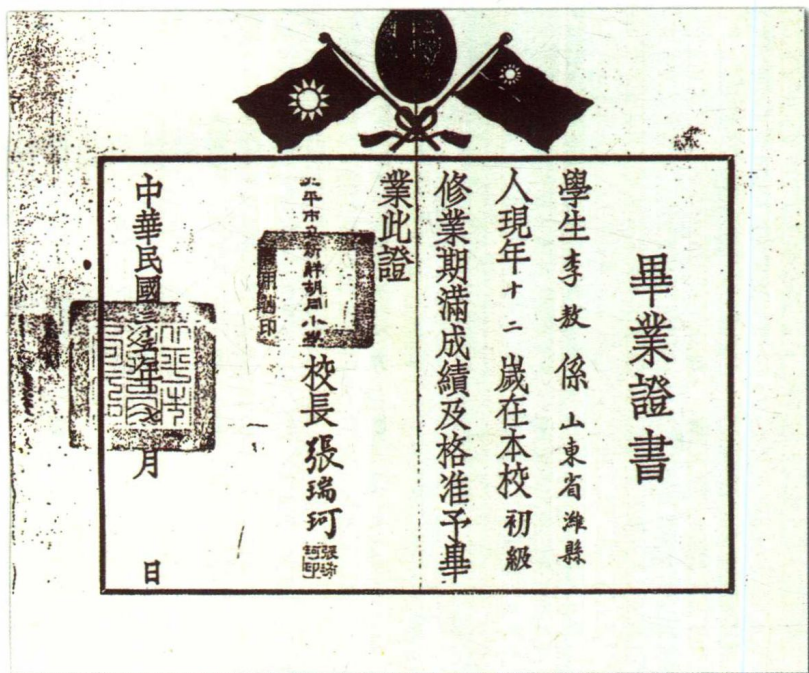 畢業證書
學生李敖係山東省濰縣
人現年十二歲在本校初級
修業期滿成績及格准予畢
業此證
北平市立新鮮胡同小學
校長張瑞珂
張瑞珂印
中華民國年月日